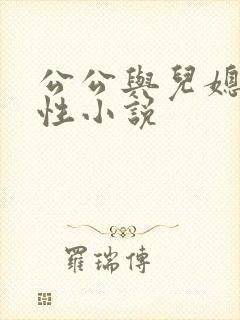 公公與兒媳
性小說
羅瑞傳